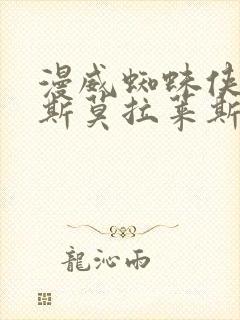 漫威蜘蛛侠
斯莫拉莱斯
龍沁雨